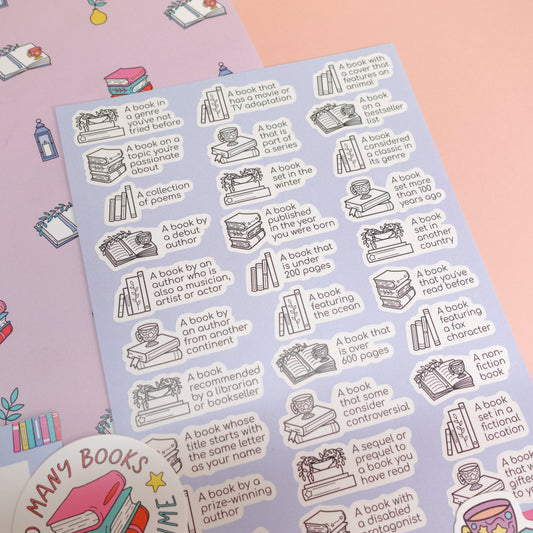 A book in
a genre
you've not
tried before
A book on a
topic you're
passionate
about
A collection
of poems
A book by
a debut
author
A book by an
author who is
also a musician,
artist or actor
A book by
an author
from another
continent
A book
recommended
by a librarian
or bookseller
A book whose
title starts with
the same letter
as your name
A book by a
prize-winning
author
A book that
has a movie or
TV adaptation
A book
that is
part of
a series
A book
set in the
winter
A book
published
in the year
you were born
A book that
is under
200 pages
A book
featuring
the ocean
A book that
is over
600 pages
A book
that some
consider
controversial
A sequel or
prequel to
a book you
have read
A book with
a disabled
protagonist
A book with
a cover that
features an
animal
A book
on a
bestseller
list
A book
considered
a classic in
its genre
A book
set more
than 100
years ago
A book
set in
another
country
A book
that you've
read before
A book
featuring
a fox
character
A non-
fiction
book
A book
set in a
fictional
location
A book
that w
gifted
to y
MANY BOOKS